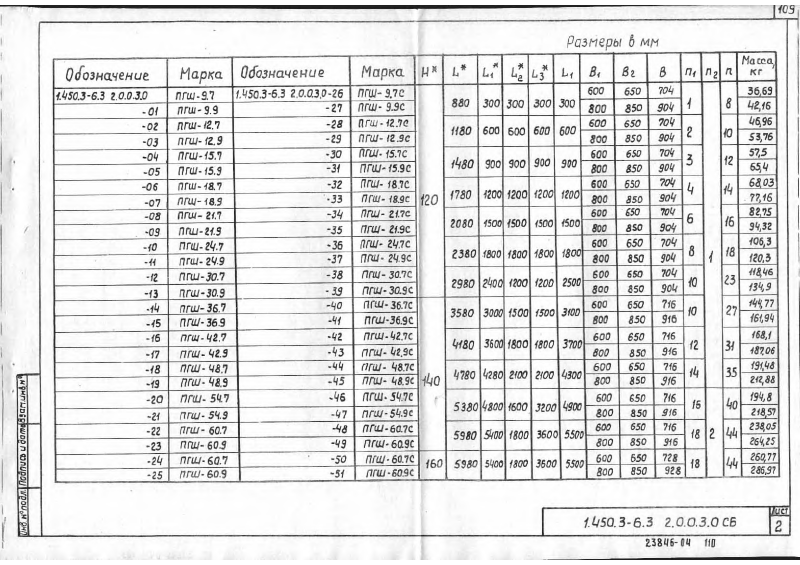 109
Размеры в мм
Обозначение Марка Обозначение Марка H* L* L1* L2* L3* L1 B1 B2 B n1 n2 n Масса, кг
1.450.3-6.3 2.0.0.3.0 ПГШ-9.7 1.450.3-6.3 2.0.0.3.0-26 ПГШ-9.7с 120 880 300 300 300 300 600 650 704 1 1 8 36,69
-01 ПГШ-9.9 -27 ПГШ-9.9с 800 850 904 42,16
-02 ПГШ-12.7 -28 ПГШ-12.7с 1180 600 600 600 600 600 650 704 2 10 46,96
-03 ПГШ-12.9 -29 ПГШ-12.9с 800 850 904 53,76
-04 ПГШ-15.7 -30 ПГШ-15.7с 1480 900 900 900 900 600 650 704 3 12 57,5
-05 ПГШ-15.9 -31 ПГШ-15.9с 800 850 904 65,4
-06 ПГШ-18.7 -32 ПГШ-18.7с 1780 1200 1200 1200 1200 600 650 704 4 14 68,03
-07 ПГШ-18.9 -33 ПГШ-18.9с 800 850 904 77,16
-08 ПГШ-21.7 -34 ПГШ-21.7с 2080 1500 1500 1500 1500 600 650 704 6 16 82,75
-09 ПГШ-21.9 -35 ПГШ-21.9с 800 850 904 94,32
-10 ПГШ-24.7 -36 ПГШ-24.7с 2380 1800 1800 1800 1800 600 650 704 8 18 106,3
-11 ПГШ-24.9 -37 ПГШ-24.9с 800 850 904 120,3
-12 ПГШ-30.7 -38 ПГШ-30.7с 2980 2400 1200 1200 2500 600 650 704 10 23 118,46
-13 ПГШ-30.9 -39 ПГШ-30.9с 800 850 904 134,9
-14 ПГШ-36.7 -40 ПГШ-36.7с 140 3580 3000 1500 1500 3100 600 650 716 10 27 144,77
-15 ПГШ-36.9 -41 ПГШ-36.9с 800 850 916 161,94
-16 ПГШ-42.7 -42 ПГШ-42.7с 4180 3600 1800 1800 3700 600 650 716 12 31 168,1
-17 ПГШ-42.9 -43 ПГШ-42.9с 800 850 916 187,06
-18 ПГШ-48.7 -44 ПГШ-48.7с 4780 4280 2100 2100 4300 600 650 716 14 35 191,48
-19 ПГШ-48.9 -45 ПГШ-48.9с 800 850 916 212,88
-20 ПГШ-54.7 -46 ПГШ-54.7с 5380 4800 1600 3200 4900 600 650 716 16 2 40 194,8
-21 ПГШ-54.9 -47 ПГШ-54.9с 800 850 916 218,57
-22 ПГШ-60.7 -48 ПГШ-60.7с 5980 5400 1800 3600 5500 600 650 716 18 44 238,05
-23 ПГШ-60.9 -49 ПГШ-60.9с 800 850 916 264,25
-24 ПГШ-60.7 -50 ПГШ-60.7с 160 5980 5400 1800 3600 5500 600 650 728 18 44 260,77
-25 ПГШ-60.9 -51 ПГШ-60.9с 800 850 928 286,97
Инв.№ подл. Подпись и дата Взам.инв.№
1.450.3-6.3 2.0.0.3.0 СБ
Лист
2
23846-04 110